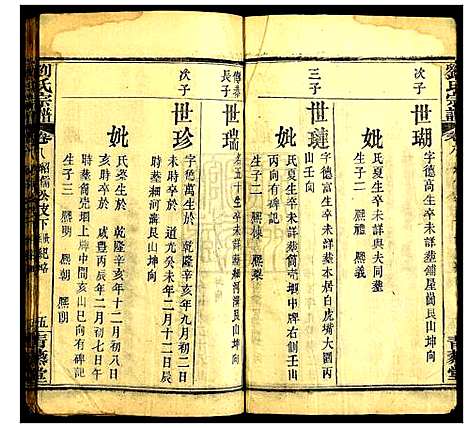 劉氏宗譜
世瑚
字德高生卒未詳葬舖屋崗艮山坤向
妣
氏 生卒未詳與夫同葬
生子二 熙禮 熙義
三子
世璉
字德富生卒未詳葬本居白虎嘴大劉丙
山壬向
妣
氏夏生卒未詳葬蒭壳堌中牌右劃壬山
丙向有碑記
生子二 熙棟 熙榮
青藜堂
劉氏宗譜
卷八
紹儒公支下
五
長子
世瑞
名五十生卒未詳葬細河溝艮山坤向
次子
世珍
字德萬生於 乾隆辛亥年九月初二日
未時卒於 道光癸未年二月十二日辰
時葬細河溝艮山坤向
妣
氏蔡生於 乾隆辛亥年十二月初八日
辰時卒於 咸豐壬子年二月初七日午
時葬蒭壳堌上牌中間亥山巳向有碑記
生子三 熙明 熙朝 熙朗
青藜堂